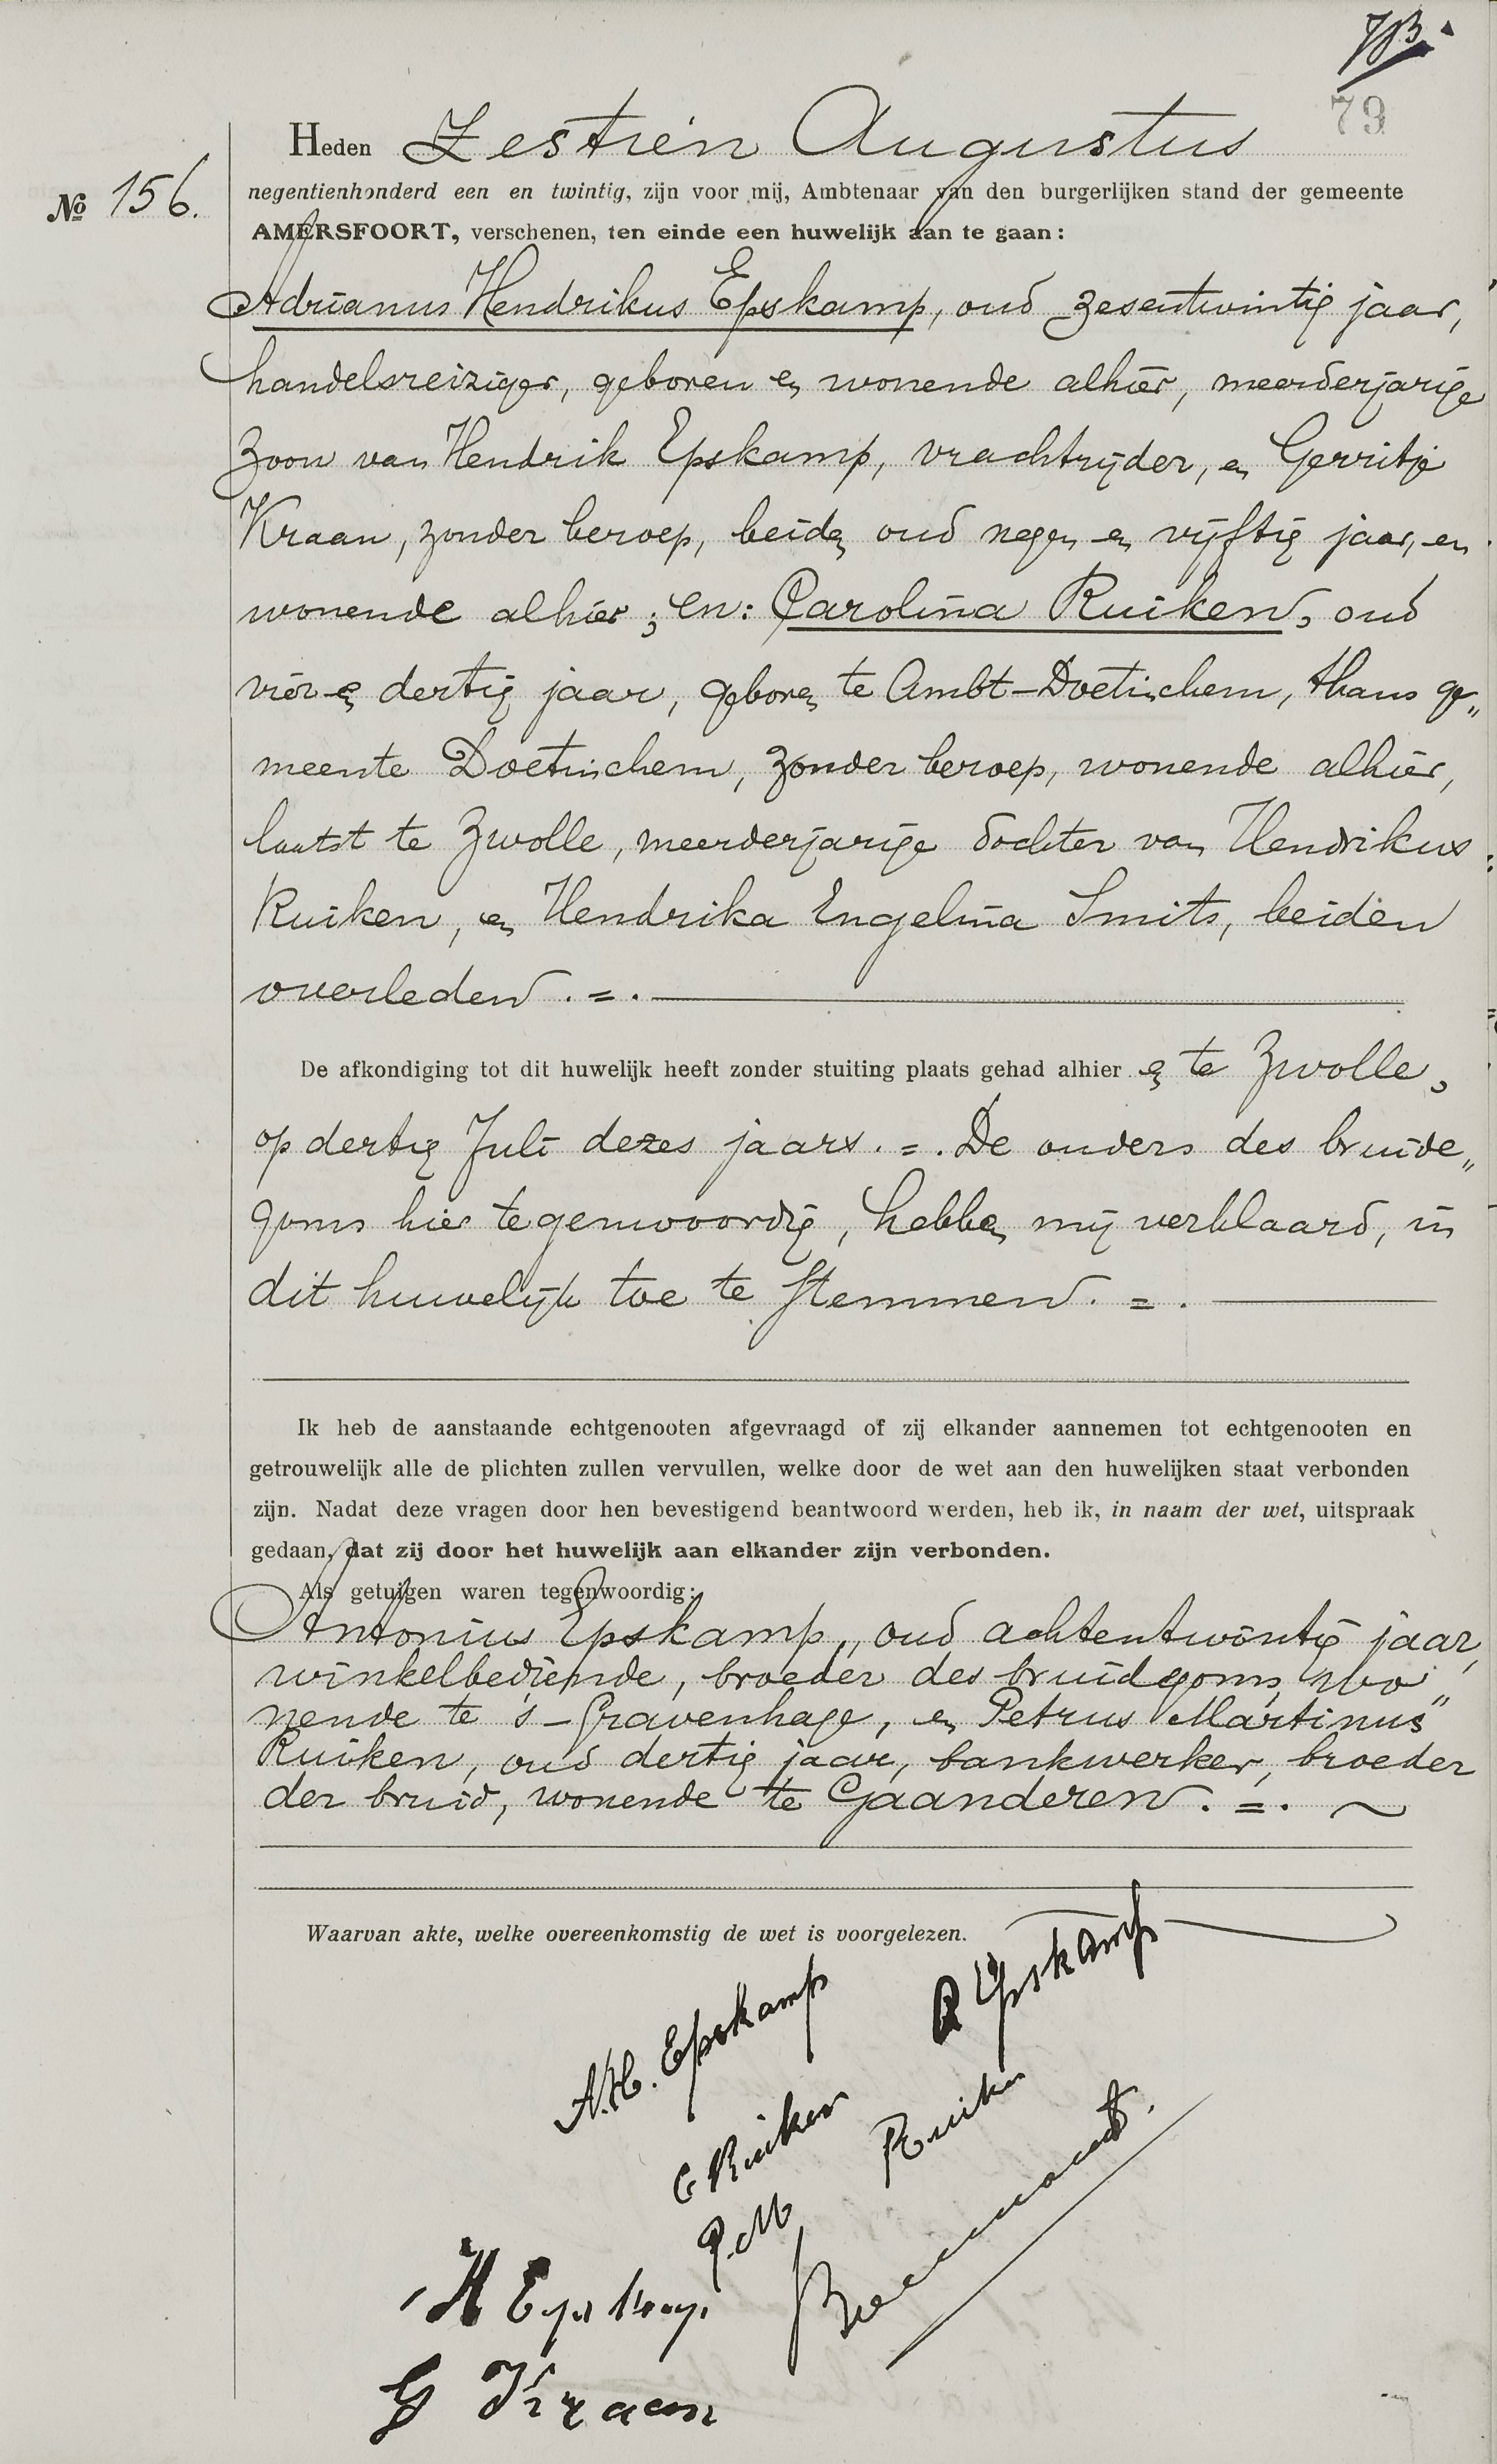 79
Heden Zestien Augustus
No 156.
negentienhonderd een en twintig, zijn voor mij, Ambtenaar van den burgerlijken stand der gemeente
AMERSFOORT, verschenen, ten einde een huwelijk aan te gaan:
Adrianus Hendrikus Epskamp, oud zesentwintig jaar,
handelsreiziger, geboren en wonende alhier, meerderjarige
zoon van Hendrik Epskamp, vrachtrijder, en Gerritje
Kraan, zonder beroep, beiden oud negen en vijftig jaar, en
wonende alhier; en: Carolina Ruiken, oud
vier en dertig jaar, geboren te Ambt-Doetinchem, thans ge„
meente Doetinchem, zonder beroep, wonende alhier,
laatst te Zwolle, meerderjarige dochter van Hendrikus
Ruiken, en Hendrika Engelina Smits, beiden
overleden . = .
De afkondiging tot dit huwelijk heeft zonder stuiting plaats gehad alhier en te Zwolle,
op dertig Juli dezes jaars. = . De ouders des bruide„
goms hier tegenwoordig, hebben mij verklaard, in
dit huwelijk toe te stemmen. = .
Ik heb de aanstaande echtgenooten afgevraagd of zij elkander aannemen tot echtgenooten en
getrouwelijk alle de plichten zullen vervullen, welke door de wet aan den huwelijken staat verbonden
zijn. Nadat deze vragen door hen bevestigend beantwoord werden, heb ik, in naam der wet, uitspraak
gedaan, dat zij door het huwelijk aan elkander zijn verbonden.
Als getuigen waren tegenwoordig:
Antonius Epskamp, oud achtentwintig jaar,
winkelbediende, broeder des bruidegoms, wo„
nende te 's-Gravenhage, en Petrus Martinus
Ruiken, oud dertig jaar, bankwerker, broeder
der bruid, wonende te Gaanderen. = . ~
Waarvan akte, welke overeenkomstig de wet is voorgelezen.
A.H. Epskamp
A Epskamp
C Ruiken
P.M. Ruiken
H Epskamp
G Kraan